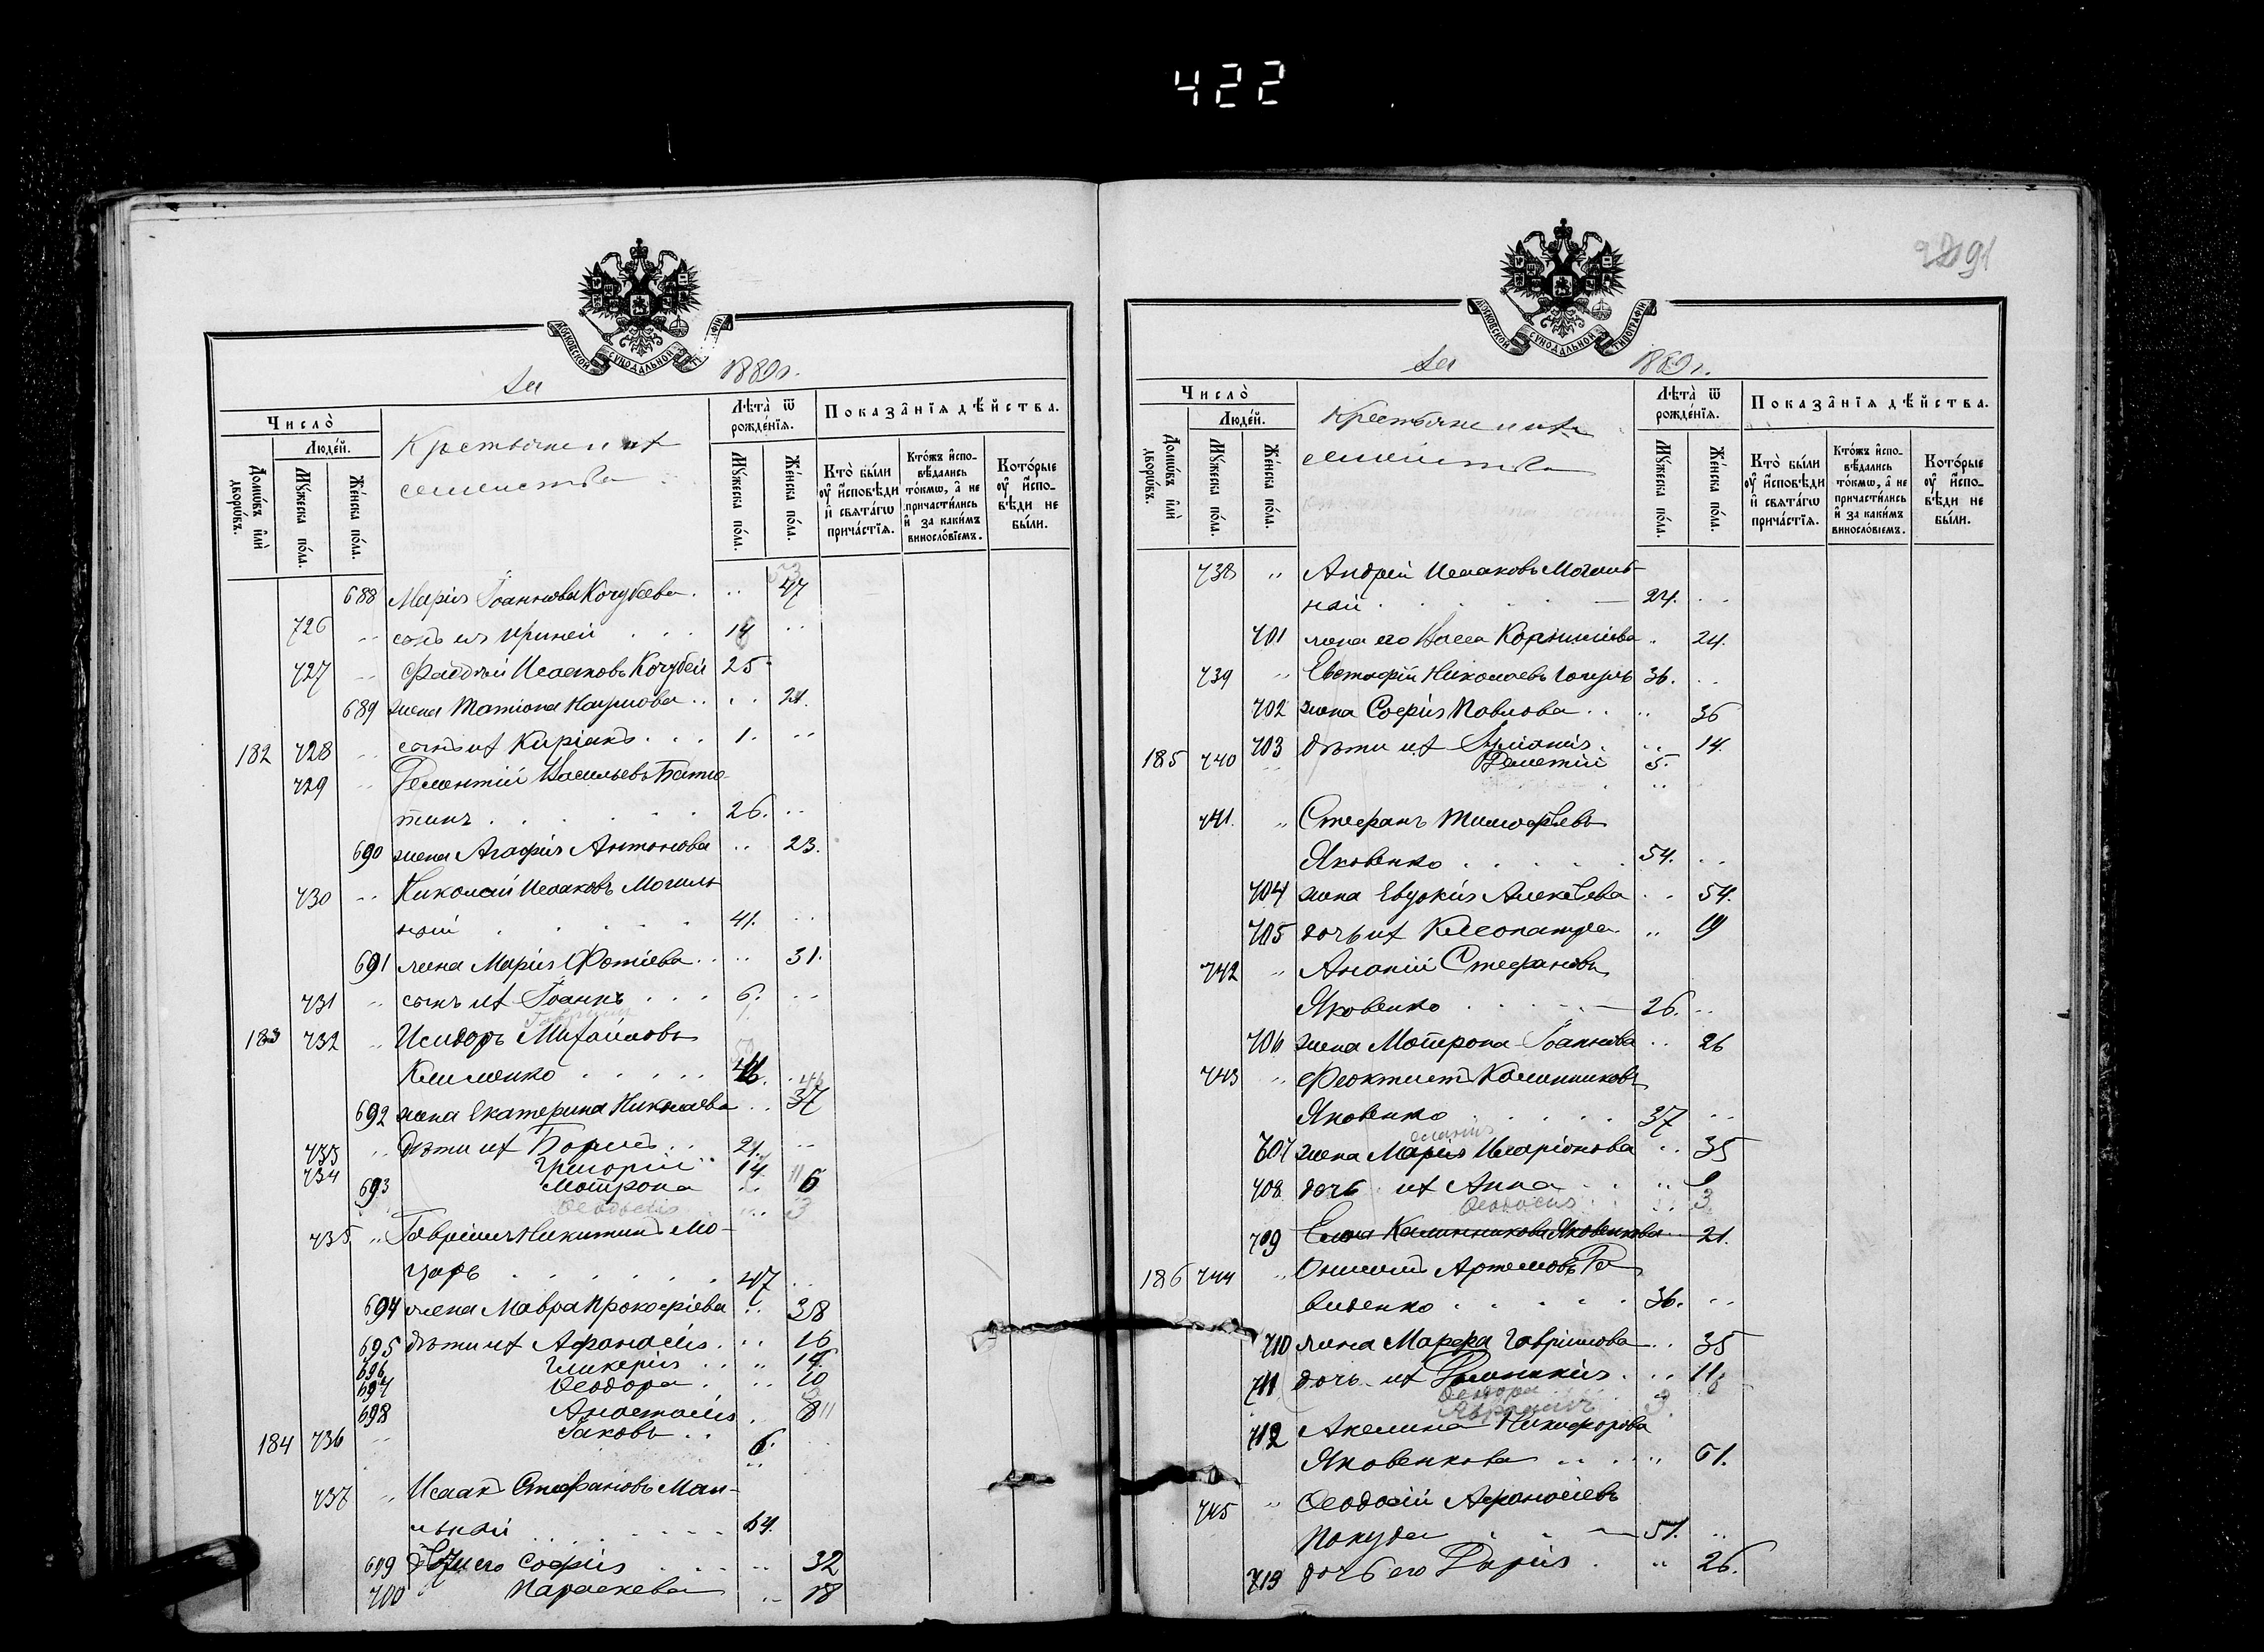 422
91
МОСКОВСКОЙ СѴНОДАЛЬНОЙ
За 1889 г.
Число̀
Люде́й.
Домѡ́въ и҆лѝ дворѡ́въ.
Мꙋ́жеска по́ла.
Же́нска по́ла.
Крестьяне и их
семейства
Лѣта̀ ѿ рожде́нїѧ.
Мꙋ́жеска по́ла.
Же́нска по́ла.
Показа̑нїѧ дѣ́йства.
Кто̀ бы́ли ᲂу҆ и҆́сповѣди и҆ свѧта́гѡ прича́стїѧ.
Кто́жъ и҆спо-вѣ́дались то́кмѡ, а҆ не причасти́лись и҆ за каки́мъ виносло́вїемъ.
Кото́рые ᲂу҆ и҆́спо-вѣди не бы́ли.
688 Марія Іоаннова Кочубеева . .. 47
726 .. сынъ ея Ириней . . . 14 ..
727 .. Фаддей Исааковъ Кочубей 25
689 жена Татіана Наумова .. .. 21.
182 728 .. сынъ их Киріакъ . . . 1. ..
729 .. Васильевъ
26. ..
690 жена Агафія Антонова .. 23.
730 .. Николай Исааковъ Могиль
ной . . . . 41. ..
691 жена Марія Фотіева .. .. 31.
731 .. сынъ их Іоаннъ . . . 6. ..
Гавріил
183 732 .. Исидоръ Михайловъ
Клименко . . . . . .. 46
692 жена Екатерина Николаева .. 37
733 .. дѣти их Борисъ .. 21. ..
734 Григорій .. 14
693 Мотрона .. 11 6
Ѳеодосія ... 3
735 .. Гавріилъ Никитинъ Мо-
царь . . . . . . 47 ..
694 жена Мавра Прокофіева .. 38
695 дѣти их Афанасія . .. 16
696 Гликерія .. .. 14
697 Ѳеодора . .. 10
698 Анастасія . 8
184 736 .. Іаковъ .. 6. ..
737 .. Исаакъ Стефановъ Маги-
льной . . . . . . 64.
699 его Софія . . . .. 32
700 Параскева .. 18
МОСКОВСКОЙ СѴНОДАЛЬНОЙ ТИПОГРАФІИ
За 1889 г.
Число̀
Люде́й.
Домѡ́въ и҆лѝ дворѡ́въ.
Мꙋ́жеска по́ла.
Же́нска по́ла.
Крестьяне и их
семейства
Лѣта̀ ѿ рожде́нїѧ.
Мꙋ́жеска по́ла.
Же́нска по́ла.
Показа̑нїѧ дѣ́йства.
Кто̀ бы́ли ᲂу҆ и҆́сповѣди и҆ свѧта́гѡ прича́стїѧ.
Кто́жъ и҆спо-вѣ́дались то́кмѡ, а҆ не причасти́лись и҆ за каки́мъ виносло́вїемъ.
Кото́рые ᲂу҆ и҆́спо-вѣди не бы́ли.
738 .. Андрей Исааковъ Могиль-
ной . . . . . 24. ..
701 жена его Васса Корниліева .. 24.
739 .. Евстафій Николаевъ 36. ..
702 жена Софія Павлова .. .. 36
703 дѣти их Іуліанія . .. 14.
185 740 5.
741. .. Стефанъ Тимофѣевъ
Яковенко . . . . . 54. ..
704 жена Евдокія Алексѣева .. 54.
705 дочь их Клеопатра .. 19
742 .. Ананій Стефановъ
Яковенко . . . . 26. ..
706 жена Мотрона Іоаннова .. 26
743 .. Феоктистъ Калинниковъ
Яковенко . . . . . 37 ..
707 жена Марія Иларіонова .. 35
708 дочь их Анна . . .. 9
Ѳеодосія .. 3
709 Елена Калинникова Яковенкова .. 21.
186 744 .. Онисимъ Артемовъ Ре
виденко . . . . . 36. ..
710 жена Марфа Гавриілова .. 35
711 дочь их .. 11
Ѳеодора
3.
712 Акелина Никифорова
Яковенкова .. .. 61.
745 .. Ѳеодосій Афанасіевъ
Покуда . . 51. ..
713 дочь его Дарія . .. 26.